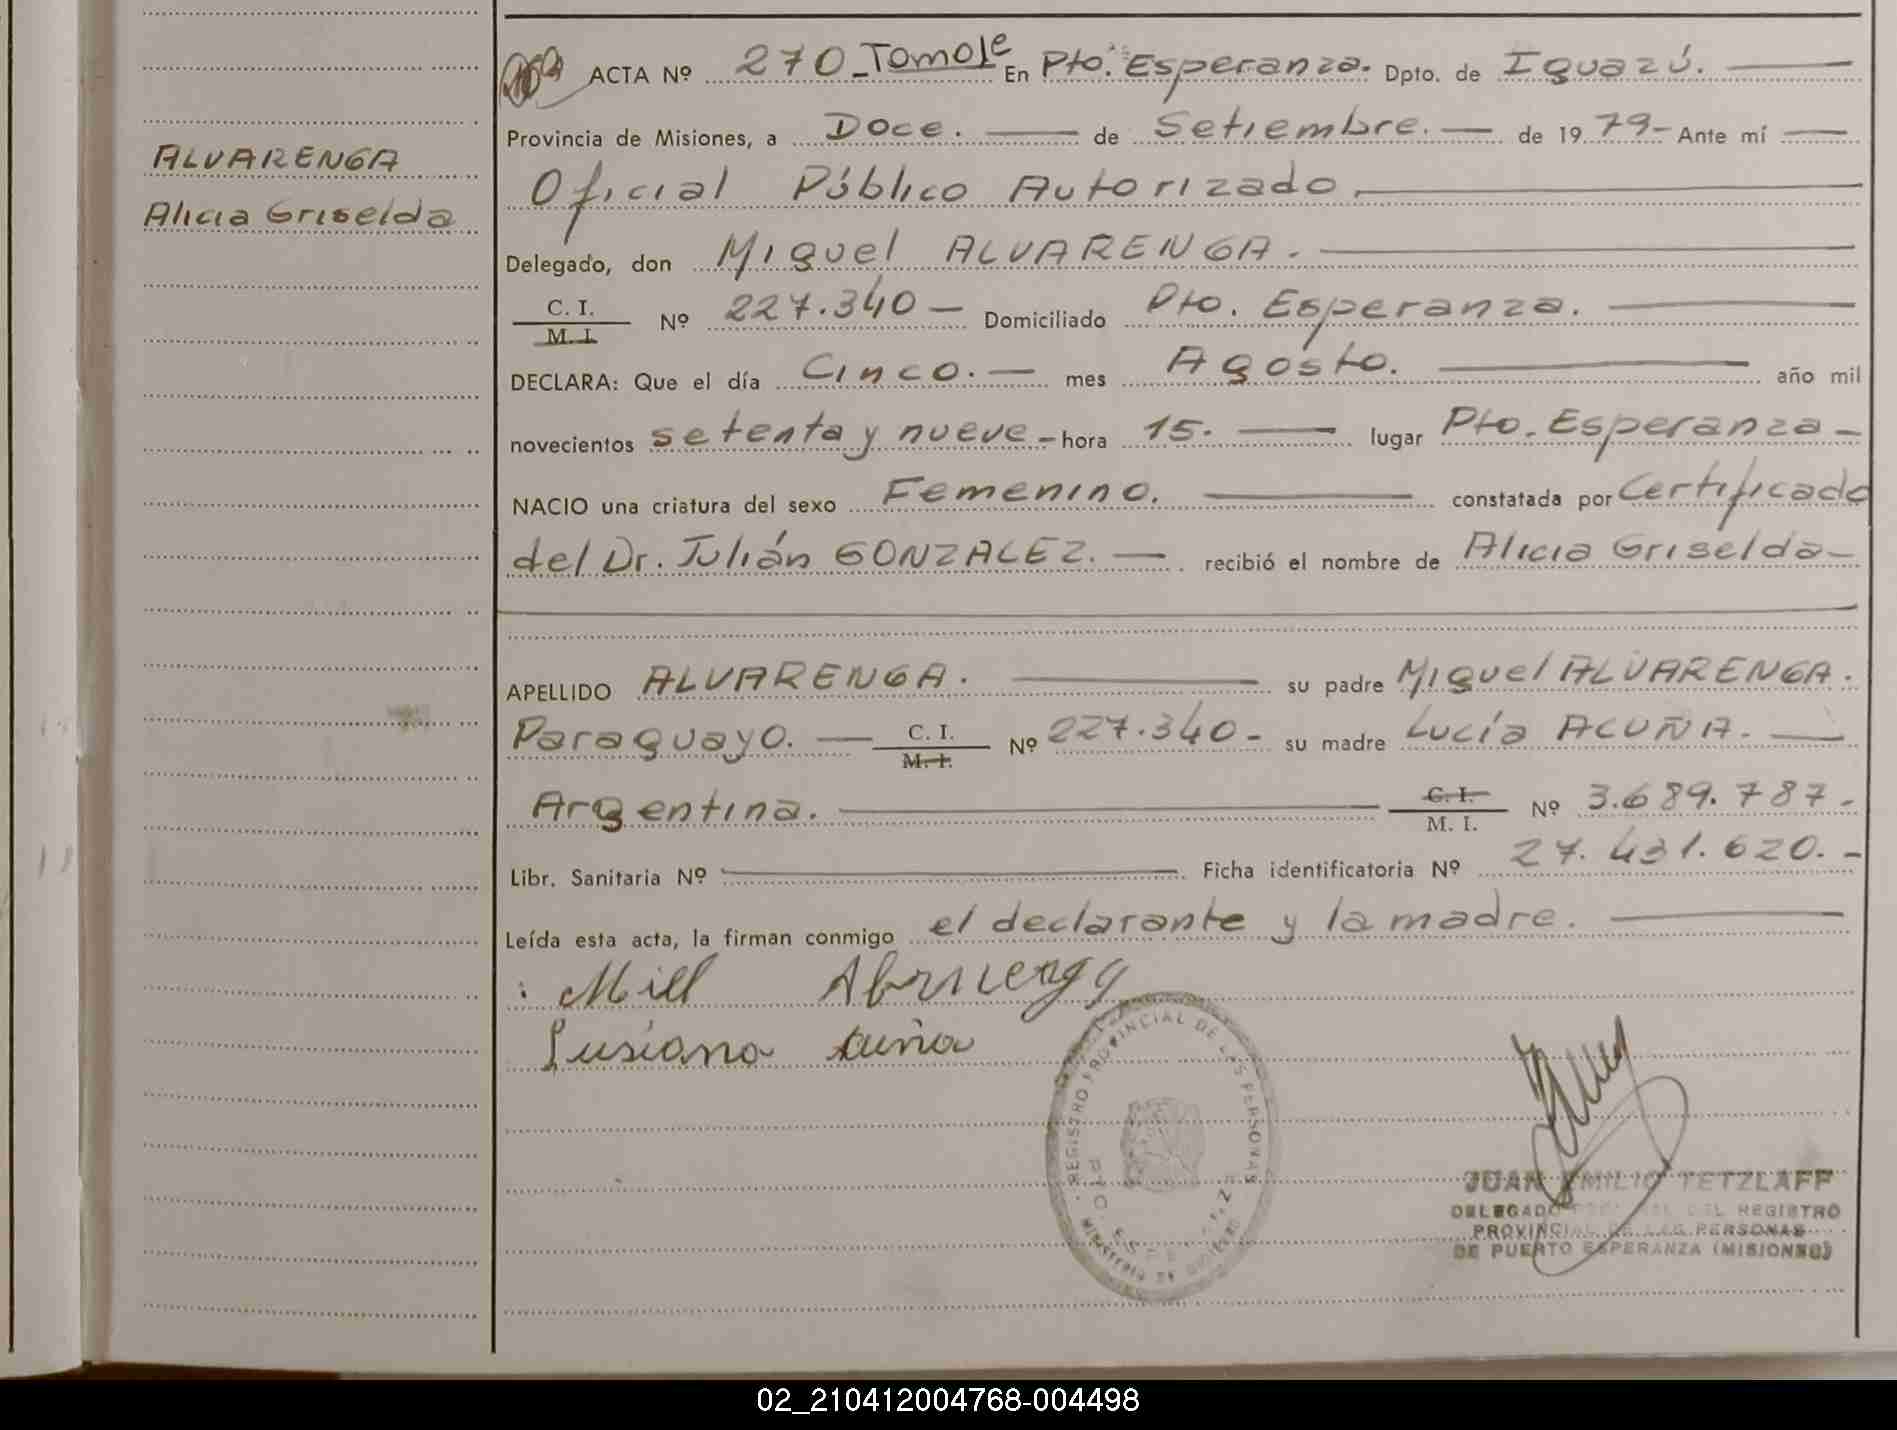 ACTA Nº 270 - Tomo Ie En Pto. Esperanza. Dpto. de Iguazú.
Provincia de Misiones, a Doce. de Setiembre. de 1979- Ante mí
ALVARENGA
Oficial Público Autorizado.
Alicia Griselda
Delegado, don Miguel ALVARENGA.
C. I.
M. I. Nº 227.340 - Domiciliado Pto. Esperanza.
DECLARA: Que el día Cinco. - mes Agosto. año mil
novecientos setenta y nueve - hora 15. lugar Pto. Esperanza -
NACIO una criatura del sexo Femenino. constatada por Certificado
del Dr. Julián GONZALEZ. recibió el nombre de Alicia Griselda -
APELLIDO ALVARENGA. su padre Miguel ALVARENGA.
Paraguayo. C. I. M. I. Nº 227.340 - su madre Lucía ACUÑA.
Argentina. C. I. M. I. Nº 3.689.787 -
Libr. Sanitaria Nº Ficha identificatoria Nº 27.431.620. -
Leída esta acta, la firman conmigo el declarante y la madre.
Lusiana
REGISTRO PROVINCIAL DE LAS PERSONAS
PTO. ESPERANZA
MINISTERIO DE GOBIERNO
JUAN EMILIO TETZLAFF
DELEGADO DEL REGISTRO
PROVINCIAL DE LAS PERSONAS
DE PUERTO ESPERANZA (MISIONES)
02_210412004768-004498